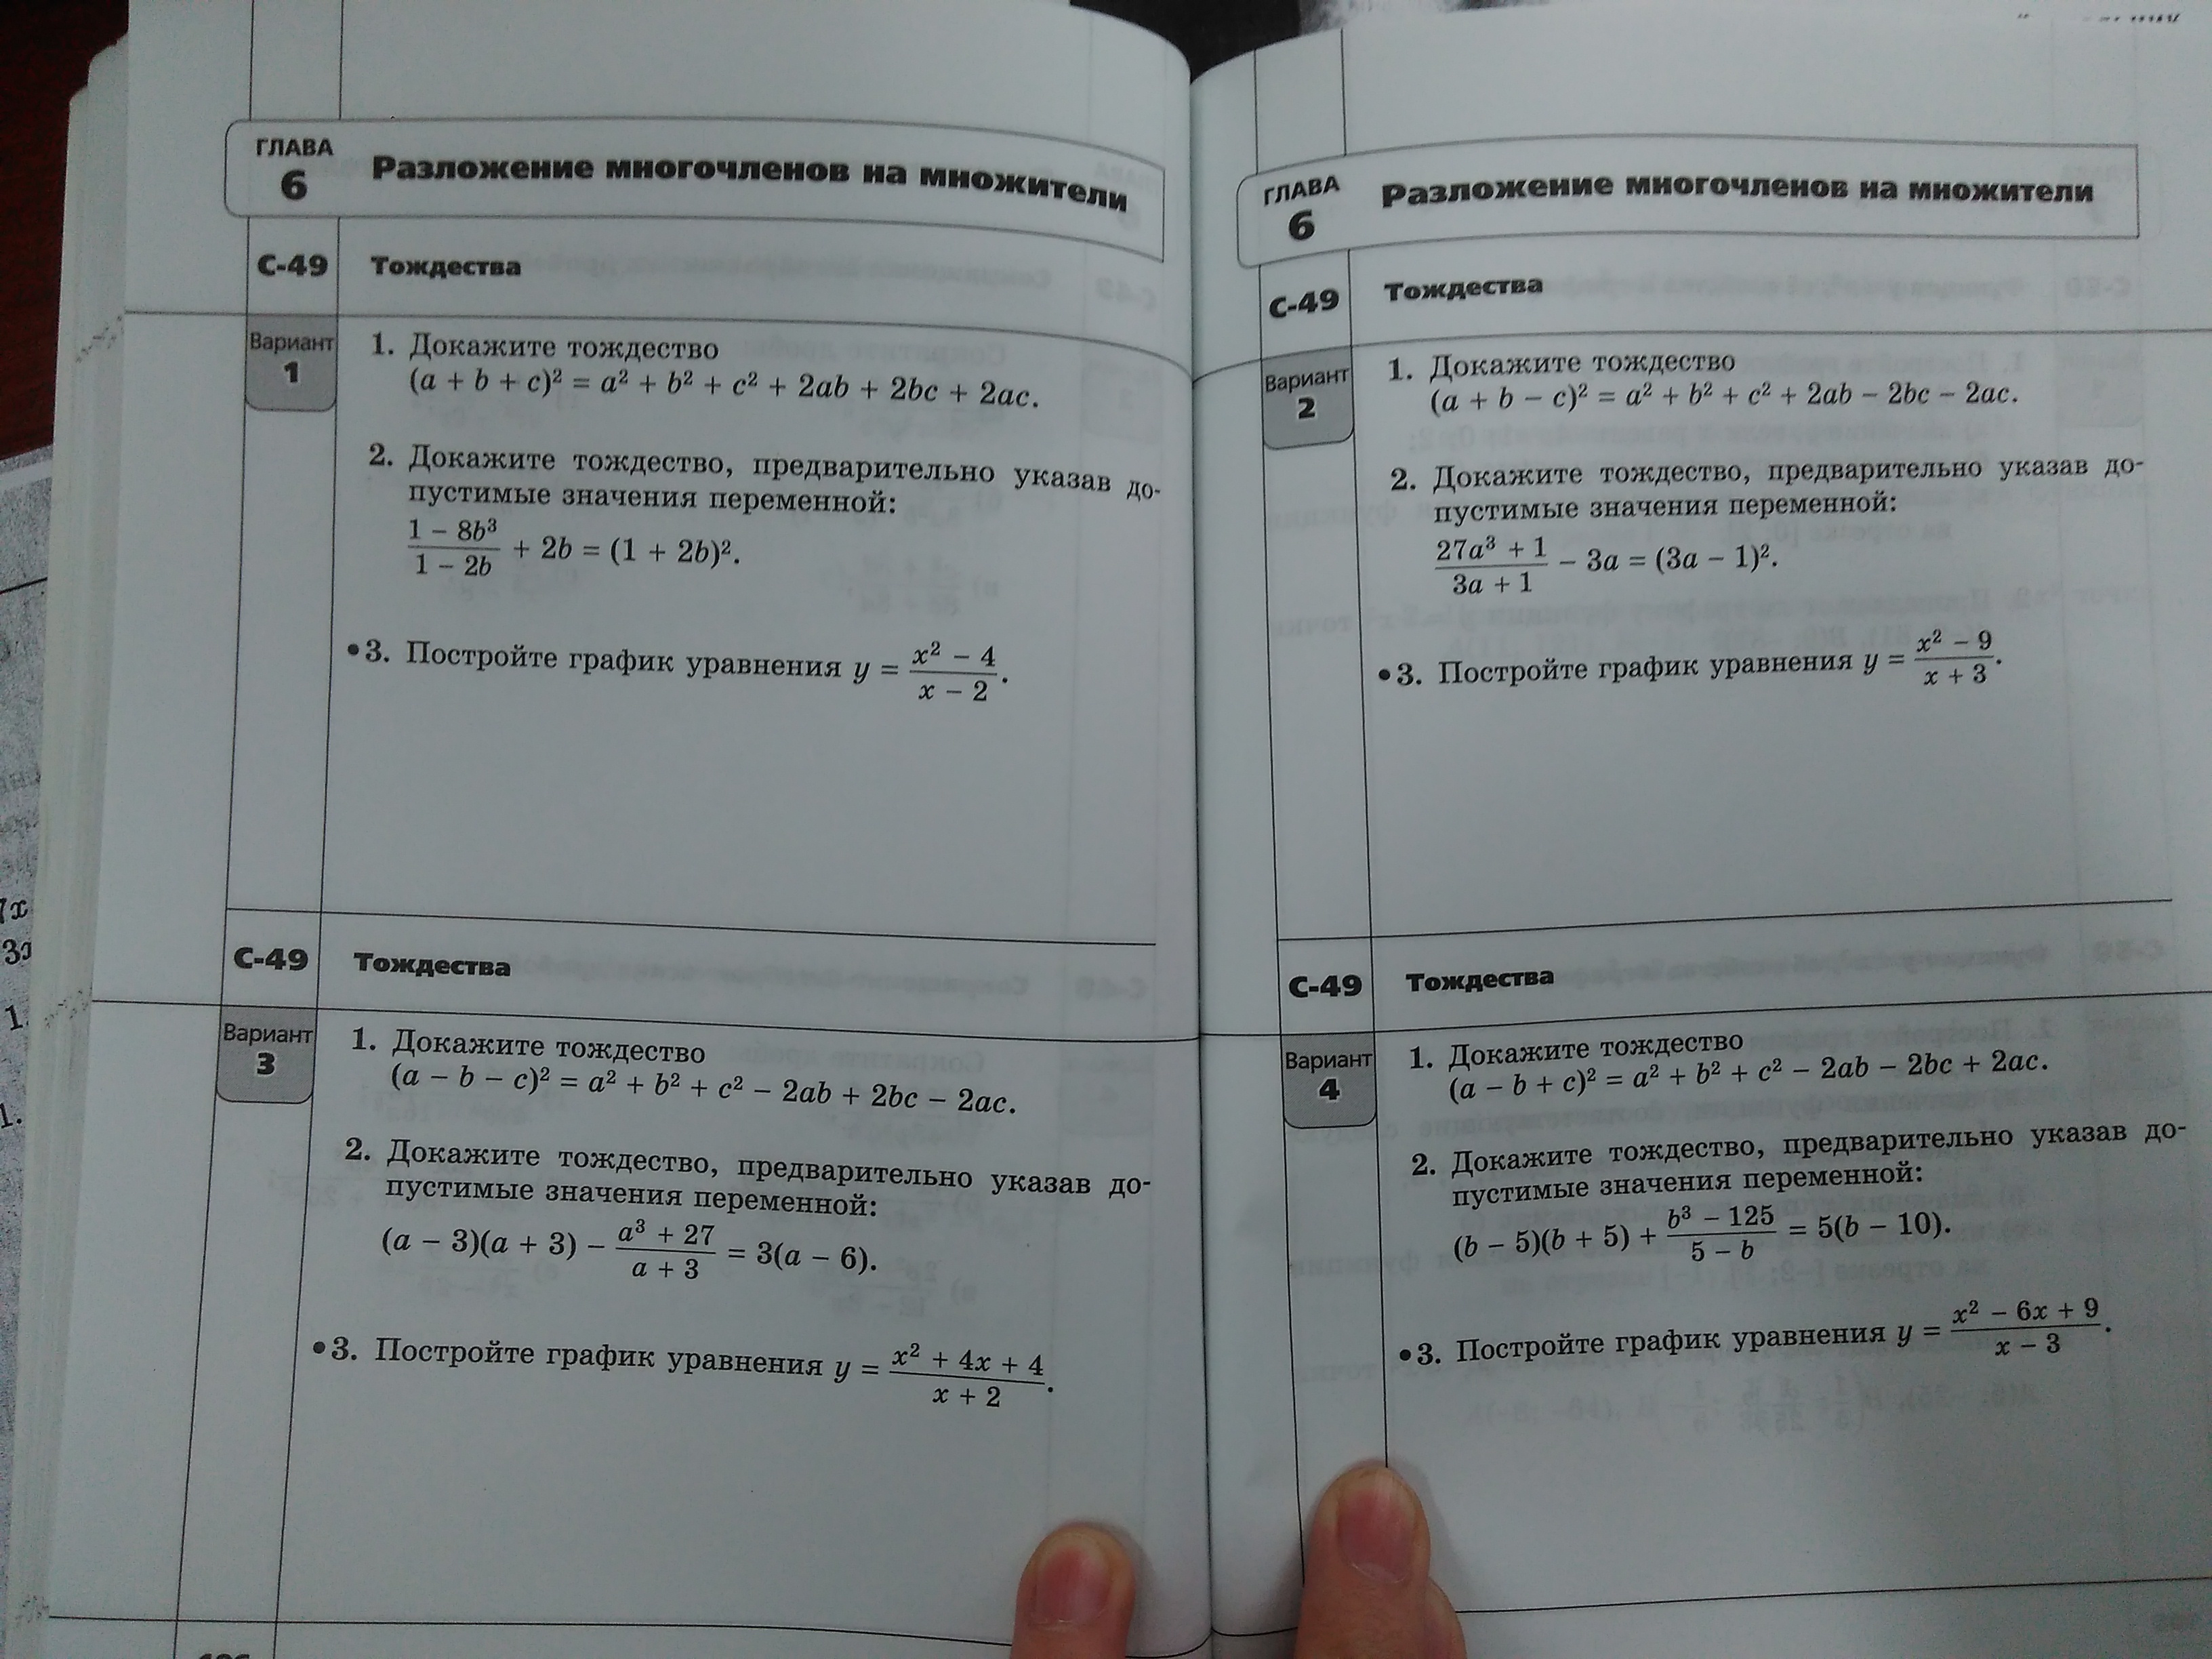 ГЛАВА
6
Разложение многочленов на множители
С-49
Тождества
Вариант
1
1. Докажите тождество
(a + b + c)² = a² + b² + c² + 2ab + 2bc + 2ac.
2. Докажите тождество, предварительно указав до-
пустимые значения переменной:
(1 − 8b³)/(1 − 2b) + 2b = (1 + 2b)².
•3. Постройте график уравнения y = (x² − 4)/(x − 2).
С-49
Тождества
Вариант
3
1. Докажите тождество
(a − b − c)² = a² + b² + c² − 2ab + 2bc − 2ac.
2. Докажите тождество, предварительно указав до-
пустимые значения переменной:
(a − 3)(a + 3) − (a³ + 27)/(a + 3) = 3(a − 6).
•3. Постройте график уравнения y = (x² + 4x + 4)/(x + 2).
ГЛАВА
6
Разложение многочленов на множители
С-49
Тождества
Вариант
2
1. Докажите тождество
(a + b − c)² = a² + b² + c² + 2ab − 2bc − 2ac.
2. Докажите тождество, предварительно указав до-
пустимые значения переменной:
(27a³ + 1)/(3a + 1) − 3a = (3a − 1)².
•3. Постройте график уравнения y = (x² − 9)/(x + 3).
С-49
Тождества
Вариант
4
1. Докажите тождество
(a − b + c)² = a² + b² + c² − 2ab − 2bc + 2ac.
2. Докажите тождество, предварительно указав до-
пустимые значения переменной:
(b − 5)(b + 5) + (b³ − 125)/(5 − b) = 5(b − 10).
•3. Постройте график уравнения y = (x² − 6x + 9)/(x − 3).